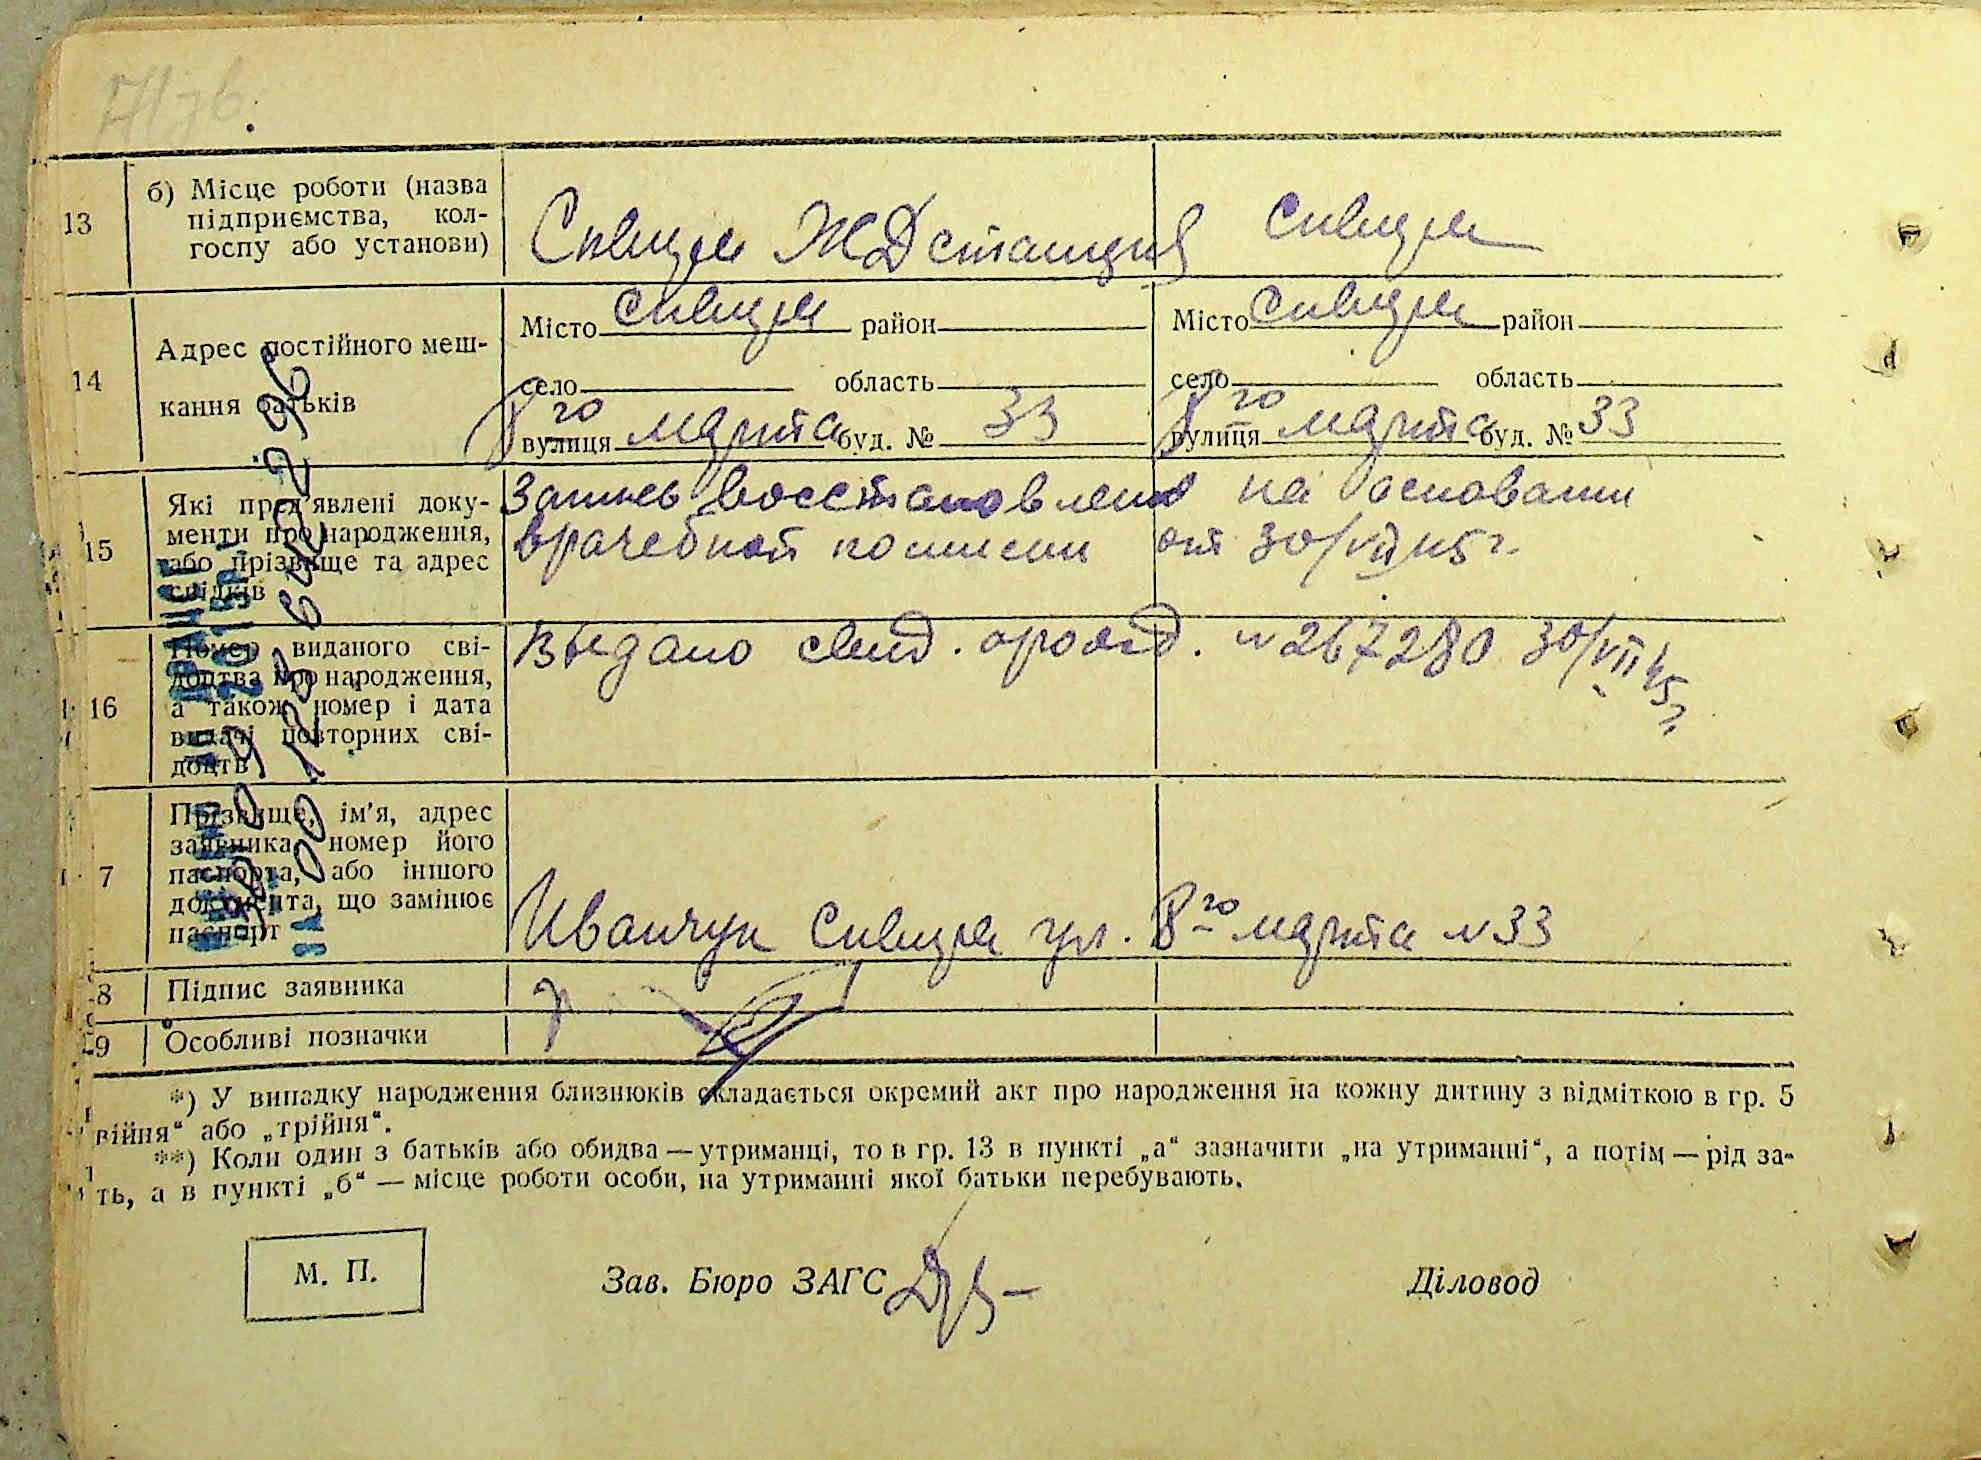 13
б) Місце роботи (назва
підприємства, кол-
госпу або установи)
Сквира ЖД станция
Сквира
14
Адрес постійного меш-
кання батьків
Місто Сквира район
село область
вулиця 8го марта буд. № 33
Місто Сквира район
село область
вулиця 8го марта буд. № 33
15
Які пред'явлені доку-
менти про народження,
або прізвище та адрес
свідків
Запись восстановлена на основании
врачебной комиссии от 30/VII 45 г.
16
Номер виданого сві-
доцтва про народження,
а також номер і дата
видачі повторних сві-
доцтв
Выдано свид. о рожд. N 267280 30/VII 45 г.
7
Прізвище, ім'я, адрес
заявника, номер його
паспорта, або іншого
документа, що замінює
паспорт
Иванчук Сквира ул. 8го марта N 33
8
Підпис заявника
9
Особливі позначки
*) У випадку народження близнюків складається окремий акт про народження на кожну дитину з відміткою в гр. 5
війня“ або „трійня“.
**) Коли один з батьків або обидва — утриманці, то в гр. 13 в пункті „а“ зазначити „на утриманні“, а потім — рід за-
ть, а в пункті „б“ — місце роботи особи, на утриманні якої батьки перебувають.
М. П.
Зав. Бюро ЗАГС
Діловод